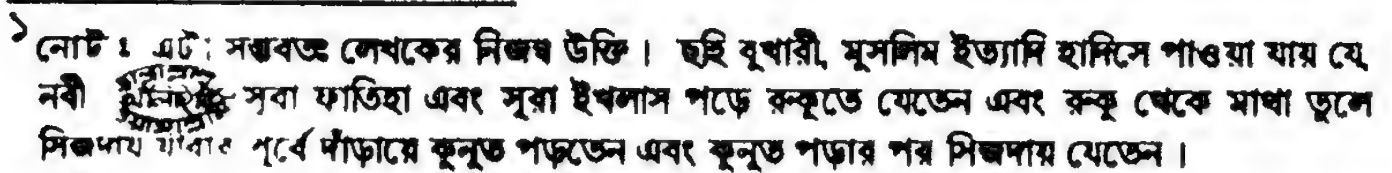 ১ নোট ঃ এটা সম্ভবতঃ লেখকের নিজস্ব উক্তি। ছহি বুখারী, মুসলিম ইত্যাদি হাদিসে পাওয়া যায় যে,
নবী সূরা ফাতিহা এবং সূরা ইখলাস পড়ে রুকুতে যেতেন এবং রুকু থেকে মাথা তুলে
সিজদায় যাবার পূর্বে দাঁড়ায়ে কুনুত পড়তেন এবং কুনুত পড়ার পর সিজদায় যেতেন।